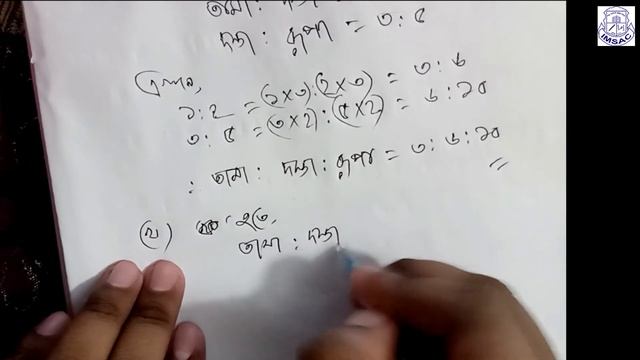 তামা : দস্তা
দস্তা : রূপা = ৩ : ৫
এখন,
১ : ২ = (১×৩) : (২×৩) = ৩ : ৬
৩ : ৫ = (৩×২) : (৫×২) = ৬ : ১০
: তামা : দস্তা : রূপা = ৩ : ৬ : ১০
(খ) হতে,
তামা : দস্তা
IMSAC